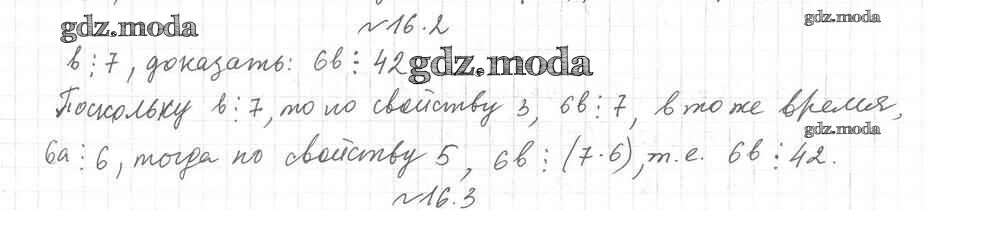 gdz.moda
gdz.moda
№16.2
в⋮7, доказать: 6в⋮42
gdz.moda
Поскольку в⋮7, то по свойству 3, 6в⋮7, в то же время,
gdz.moda
6а⋮6, тогда по свойству 5, 6в⋮(7·6), т.е. 6в⋮42.
№16.3